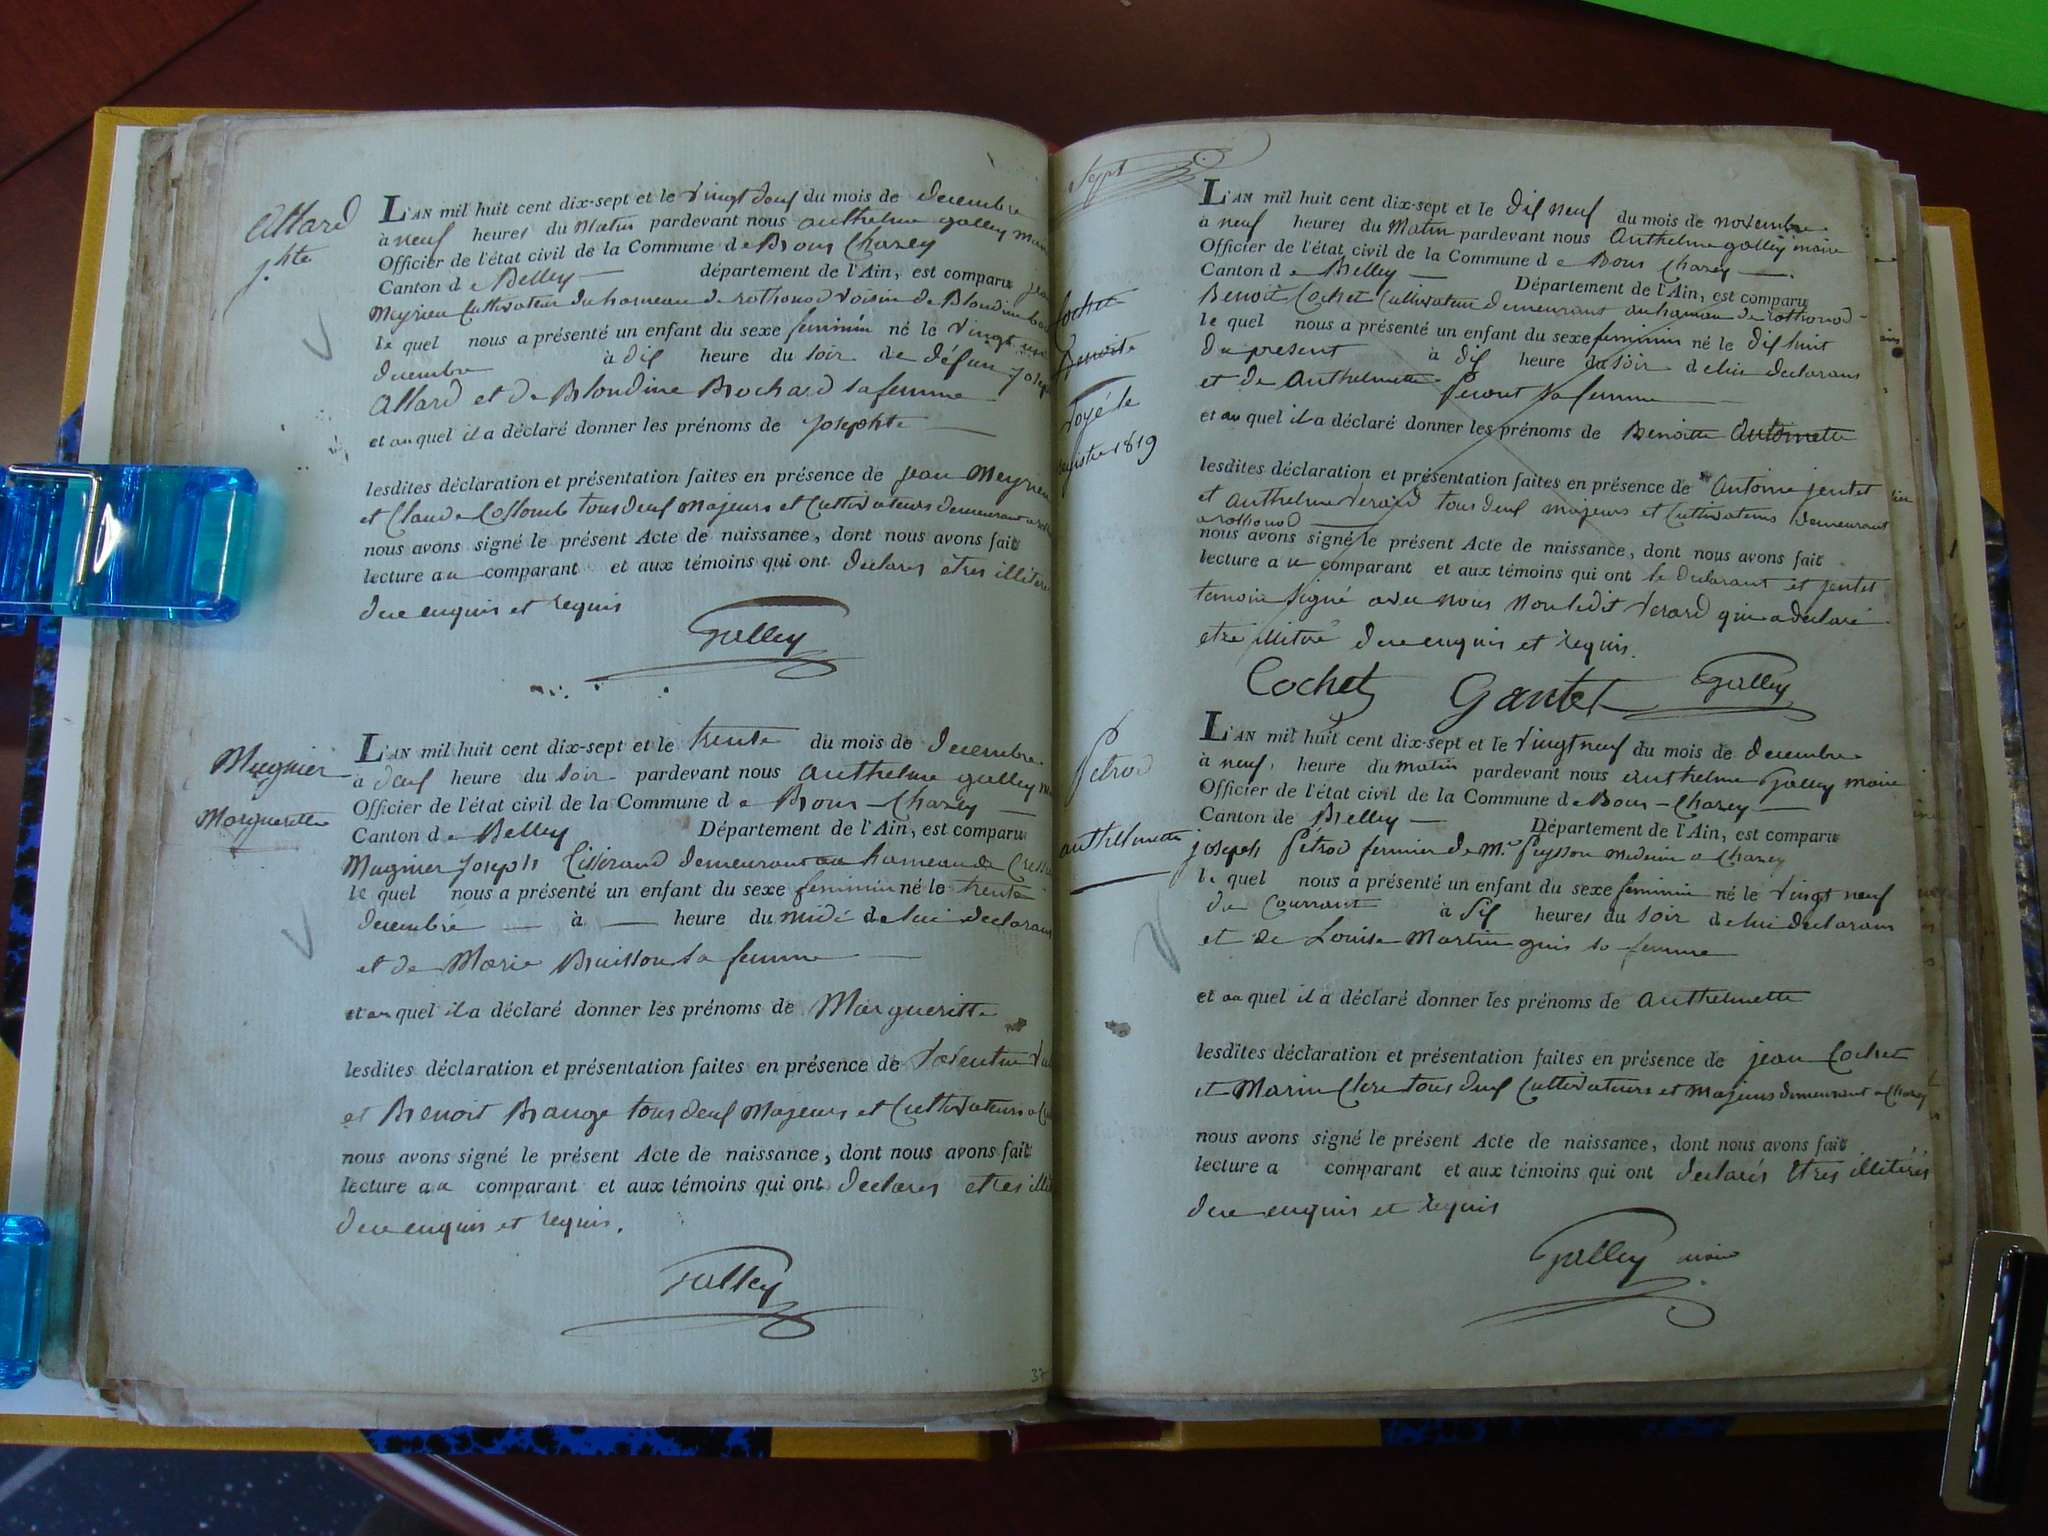 Allard
j.hte
L'AN mil huit cent dix-sept et le Vingt deux du mois de decembre
à neuf heures du Matin pardevant nous anthelme galley
Officier de l'état civil de la Commune de Bons Chazey
Canton de Belley département de l'Ain, est comparu
Meyrieu Cultivateur du hameau de rothonod voisin de Blondine
le quel nous a présenté un enfant du sexe feminin né le Vingt un
decembre à dix heure du soir de défun joseph
Allard et de Blondine Bochard sa femme
et au quel il a déclaré donner les prénoms de josephte
lesdites déclaration et présentation faites en présence de jean Meyrieu
et Claude Collomb tous deux Majeurs et Cultivateurs demeurant a
nous avons signé le présent Acte de naissance, dont nous avons fait
lecture au comparant et aux témoins qui ont declares etres illiteré
de ce enquis et requis
Galley
Mugnier
Margueritte
L'AN mil huit cent dix-sept et le trente du mois de decembre
à deux heure du soir pardevant nous anthelme galley
Officier de l'état civil de la Commune de Bons-Chazey
Canton de Belley Département de l'Ain, est comparu
Mugnier joseph tisserand demeurant au hameau de
le quel nous a présenté un enfant du sexe feminin né le trente
decembre à heure du midi de lui declarans
et de Marie Buisson sa femme
et au quel il a déclaré donner les prénoms de Margueritte
lesdites déclaration et présentation faites en présence de
et Benoit Bauge tous deux Majeurs et Cultivateurs a
nous avons signé le présent Acte de naissance, dont nous avons fait
lecture au comparant et aux témoins qui ont declares etres
de ce enquis et requis.
Galley
Sept
Cochet
Benoite
L'AN mil huit cent dix-sept et le dix neuf du mois de novembre
à neuf heures du Matin pardevant nous Anthelme galley maire
Officier de l'état civil de la Commune de Bons Chazey
Canton de Belley Département de l'Ain, est comparu
Benoit Cochet Cultivateur demeurant au hameau de rothonod
le quel nous a présenté un enfant du sexe feminin né le dix huit
du present à dix heure du soir de lui declarans
et de Anthelmette Peront sa femme
et au quel il a déclaré donner les prénoms de Benoitte Antoinette
lesdites déclaration et présentation faites en présence de Antoine jentet
et Anthelme Verard tous deux majeurs et Cultivateurs demeurant
a rothonod
nous avons signé le présent Acte de naissance, dont nous avons fait
lecture au comparant et aux témoins qui ont le declarant et jentet
temoin signé avec nous non ledit Verard qui a declaré
etre illitéré de ce enquis et requis.
Cochet Gantet Galley
Pétrod
anthelmette
L'AN mil huit cent dix-sept et le Vingt neuf du mois de decembre
à neuf heure du matin pardevant nous anthelme Galley maire
Officier de l'état civil de la Commune de Bons-Chazey
Canton de Belley Département de l'Ain, est comparu
joseph Pétrod fermier de Mr Peysson medecin a Chazey
le quel nous a présenté un enfant du sexe feminin né le Vingt neuf
du Courrant à six heures du soir de lui declarans
et de Louise Martin guis sa femme
et au quel il a déclaré donner les prénoms de anthelmette
lesdites déclaration et présentation faites en présence de jean Cochet
et Marin Clere tous deux Cultivateurs et majeurs demeurant a Chazey
nous avons signé le présent Acte de naissance, dont nous avons fait
lecture a comparant et aux témoins qui ont declarés Etres illitérés
de ce enquis et requis
Galley maire